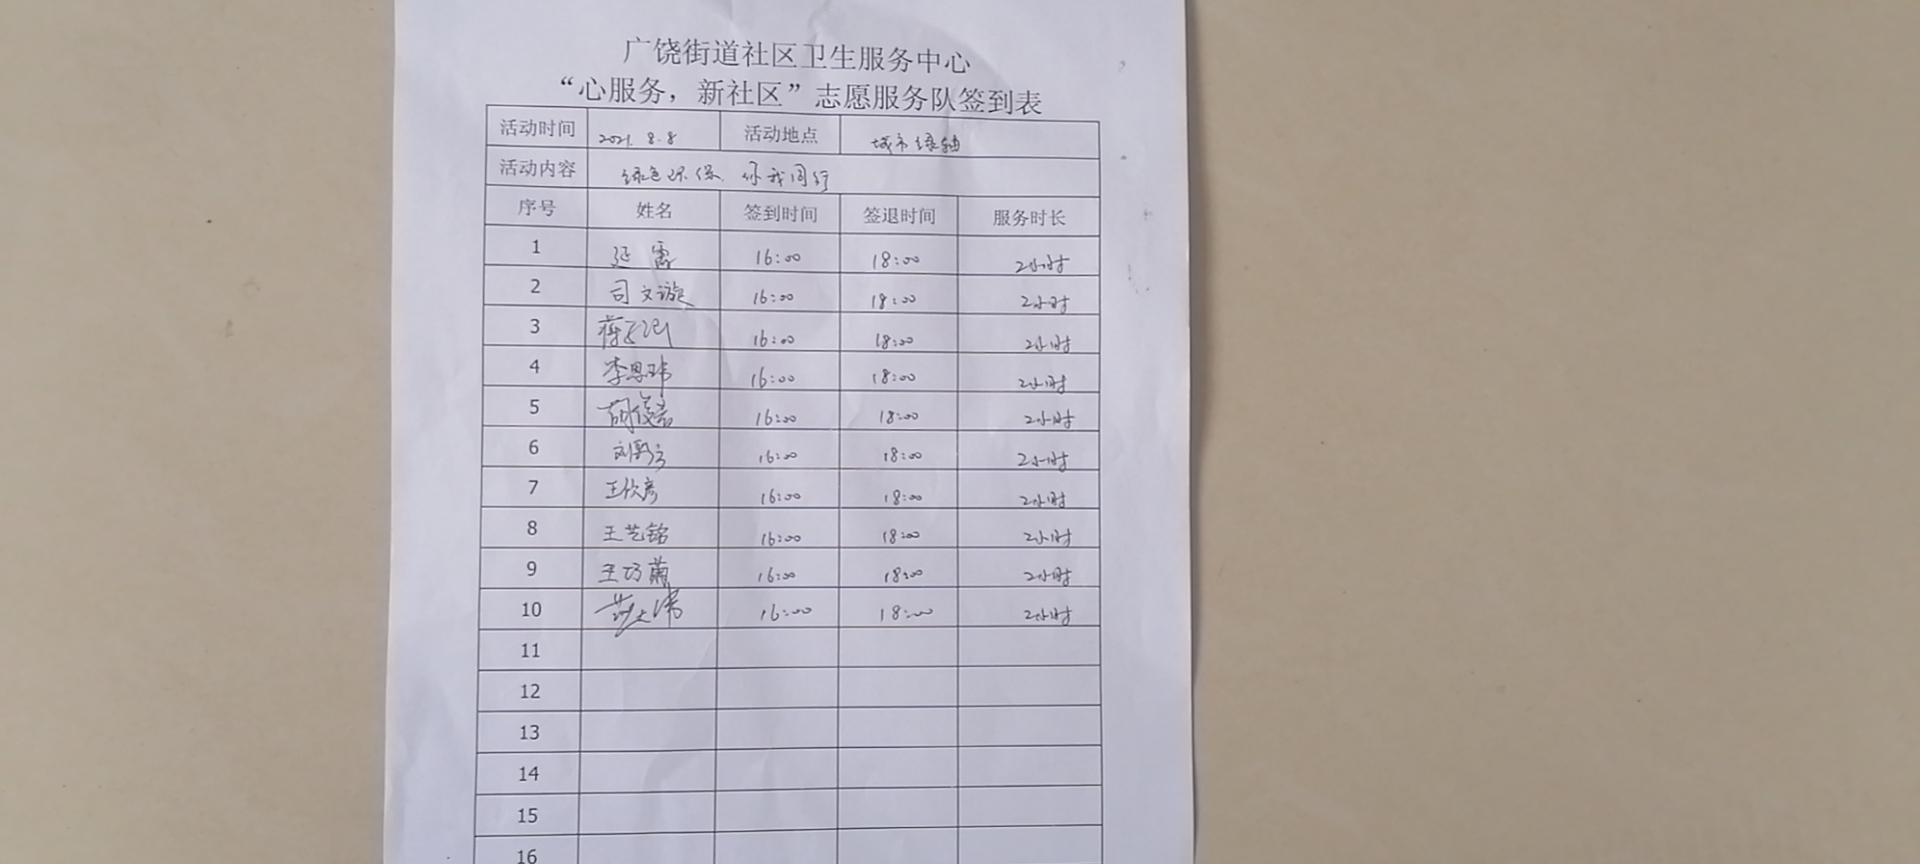 广饶街道社区卫生服务中心
“心服务，新社区”志愿服务队签到表
活动时间 2021. 8.8 活动地点 城市绿轴
活动内容 绿色环保、你我同行
序号 姓名 签到时间 签退时间 服务时长
1 16:00 18:00 2小时
2 司文漩 16:00 18:00 2小时
3 16:00 18:00 2小时
4 李思玮 16:00 18:00 2小时
5 16:00 18:00 2小时
6 16:00 18:00 2小时
7 王欣彦 16:00 18:00 2小时
8 王艺铭 16:00 18:00 2小时
9 王巧菊 16:00 18:00 2小时
10 16:00 18:00 2小时
11
12
13
14
15
16